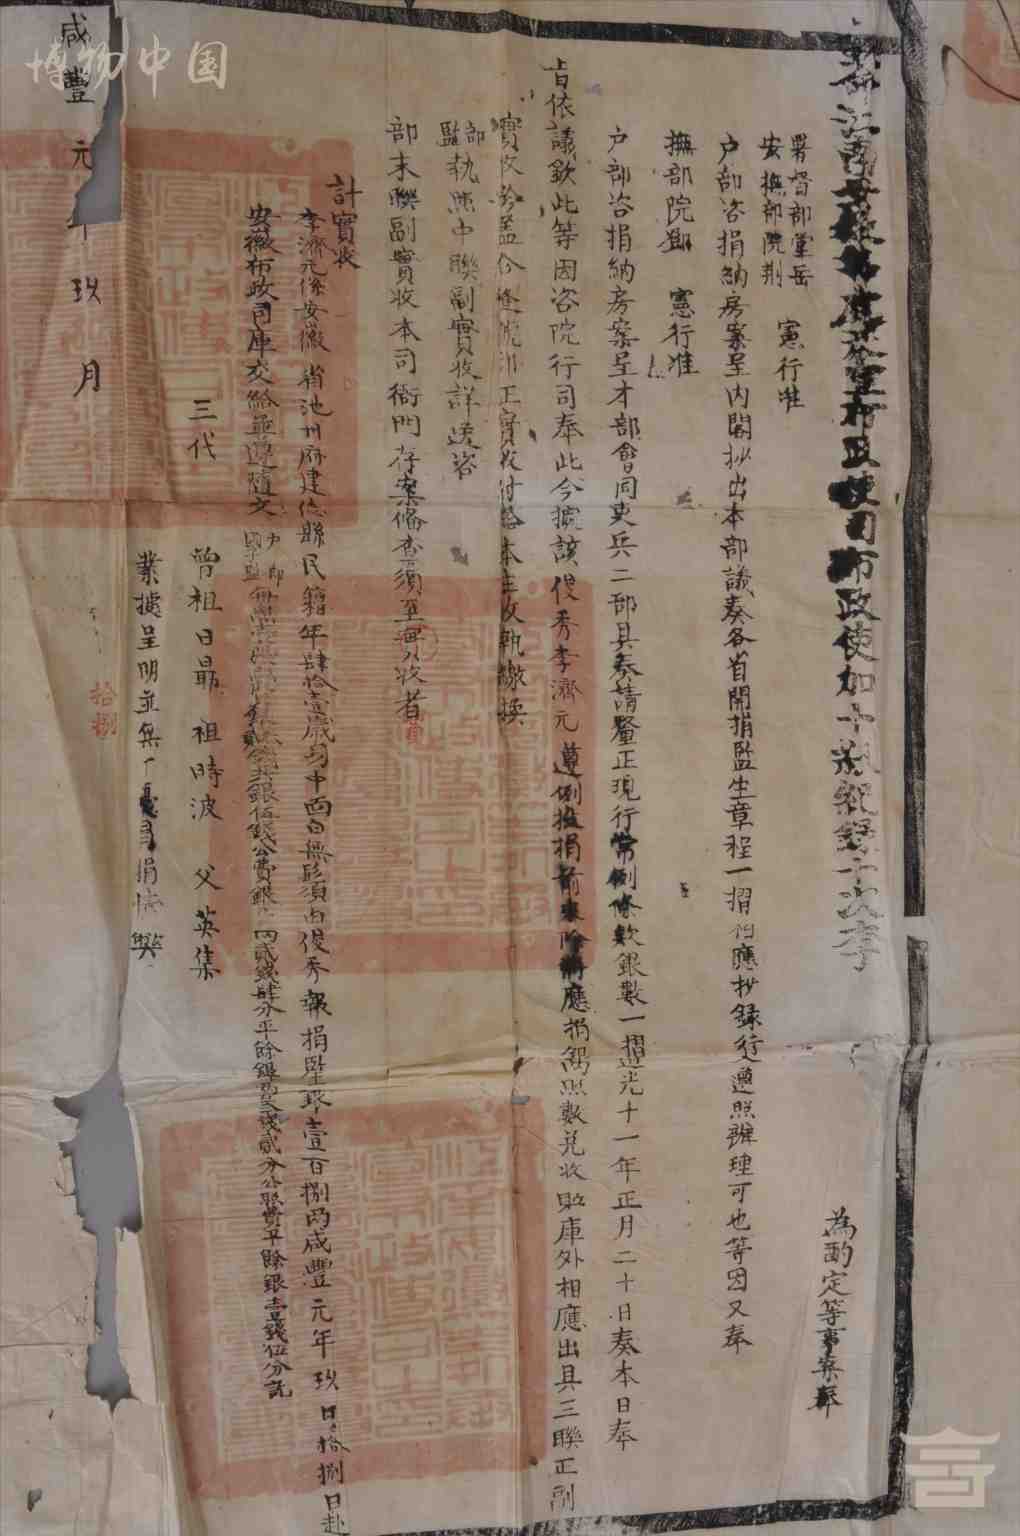 博物中国
江南安徽等處承宣布政使司布政使加十級紀錄十次李
為酌定等事案奉
署督部堂岳
安撫部院荆
憲行准
户部咨捐納房案呈内閣抄出本部議奏各省開捐監生章程一摺相應抄錄行遵照辦理可也等因又奉
撫部院鄧 憲行准
户部咨捐納房案呈才部會同吏兵二部具奏請釐正現行常例條款銀數一摺道光十一年正月二十日奏本日奉
旨依議欽此等因咨院行司奉此今據該俊秀李濟元遵例報捐前來除將應捐銀照數兑收貯庫外相應出具三聯正副
實收鈐蓋合縫印正實收付給本生收執繳換
部監執照中聯副實收詳送咨
部末聯副實收本司衙門存案備查須至實收者
計實收
李濟元係安徽省池州府建德縣民籍年肆拾壹歲身中面白無鬚須由俊秀報捐監銀壹百捌兩咸豐元年玖月拾捌日赴
安徽布政司庫交給並遵隨文户部國子監銀伍錢公費銀兩貳錢肆分平餘銀貳分公服費平餘銀壹錢伍分訖
三代
曾祖日最 祖時波 父英集
業據呈明並無丁憂捐
拾捌
咸豐元年玖月